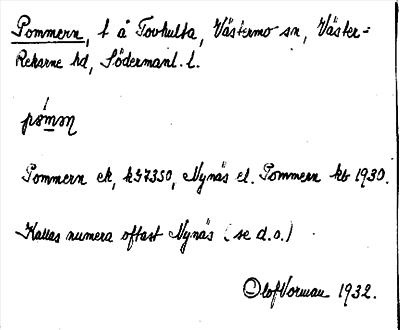 Pommern, t å Tovhulta, Västermo sn, Väster-
Rekarne hd, Södermanl. l.
pòmæ̣n
Pommern ek, kS7350, Nynäs el. Pommern kb 1930.
Kallas numera oftast Nynäs (se d.o.)
Olof Vorman 1932.